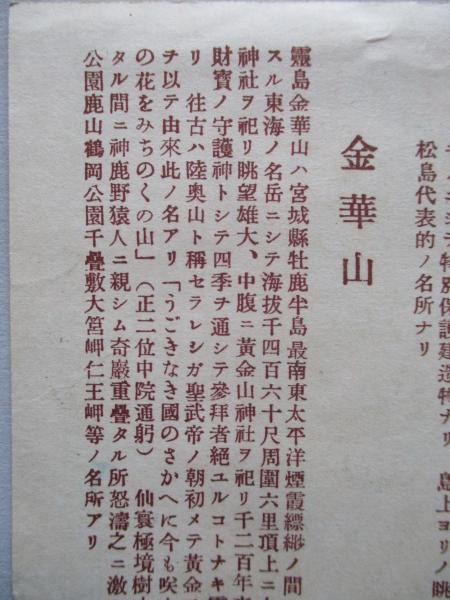 ノニシテ特別保護建造物ナリ　島上ヨリノ眺
松島代表的ノ名所ナリ
金華山
靈島金華山ハ宮城縣牡鹿半島最南東太平洋煙霞縹緲ノ間
スル東海ノ名岳ニシテ海拔千四百六十尺周圍六里頂上ニ
神社ヲ祀リ眺望雄大、中腹ニ黃金山神社ヲ祀リ千二百年
財寶ノ守護神トシテ四季ヲ通シテ參拜者絕ユルコトナキ
リ　往古ハ陸奥山ト稱セラレシガ聖武帝ノ朝初メテ黃金
ヲ以テ由來此ノ名アリ「うごきなき國のさかへに今も咲
の花をみちのくの山」（正二位中院通躬）　仙寰極境樹
タル間ニ神鹿野猿人ニ親シム奇巖重疊タル所怒濤之ニ激
公園鹿山鶴岡公園千疊敷大筥岬仁王岬等ノ名所アリ